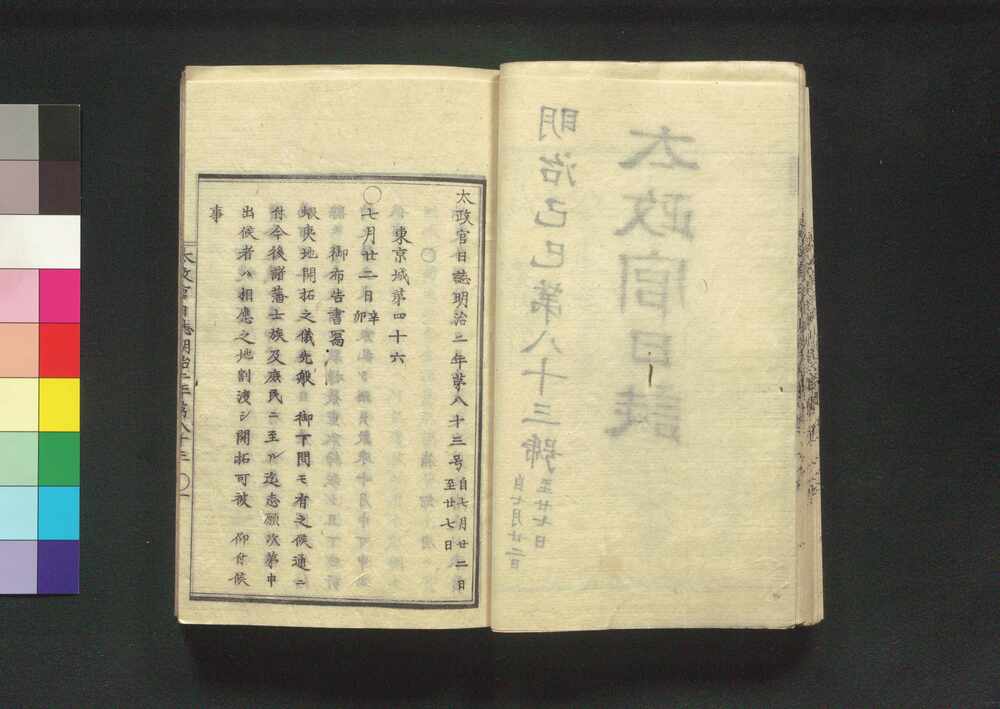 太政官日誌
明治己巳第八十三號
自七月廿二日
至廿七日
太政官日誌明治二年第八十三号
自七月廿二日
至廿七日
東京城第四十六
〇七月廿二日辛卯
御布告書寫
蝦夷地開拓之儀先般 御下問モ有之候通ニ
付今後諸藩士族及庶民ニ至ル迄志願次第申
出候者ハ相應之地割渡シ開拓可被 仰付候
事
太政官日誌明治二年第八十三 〇一